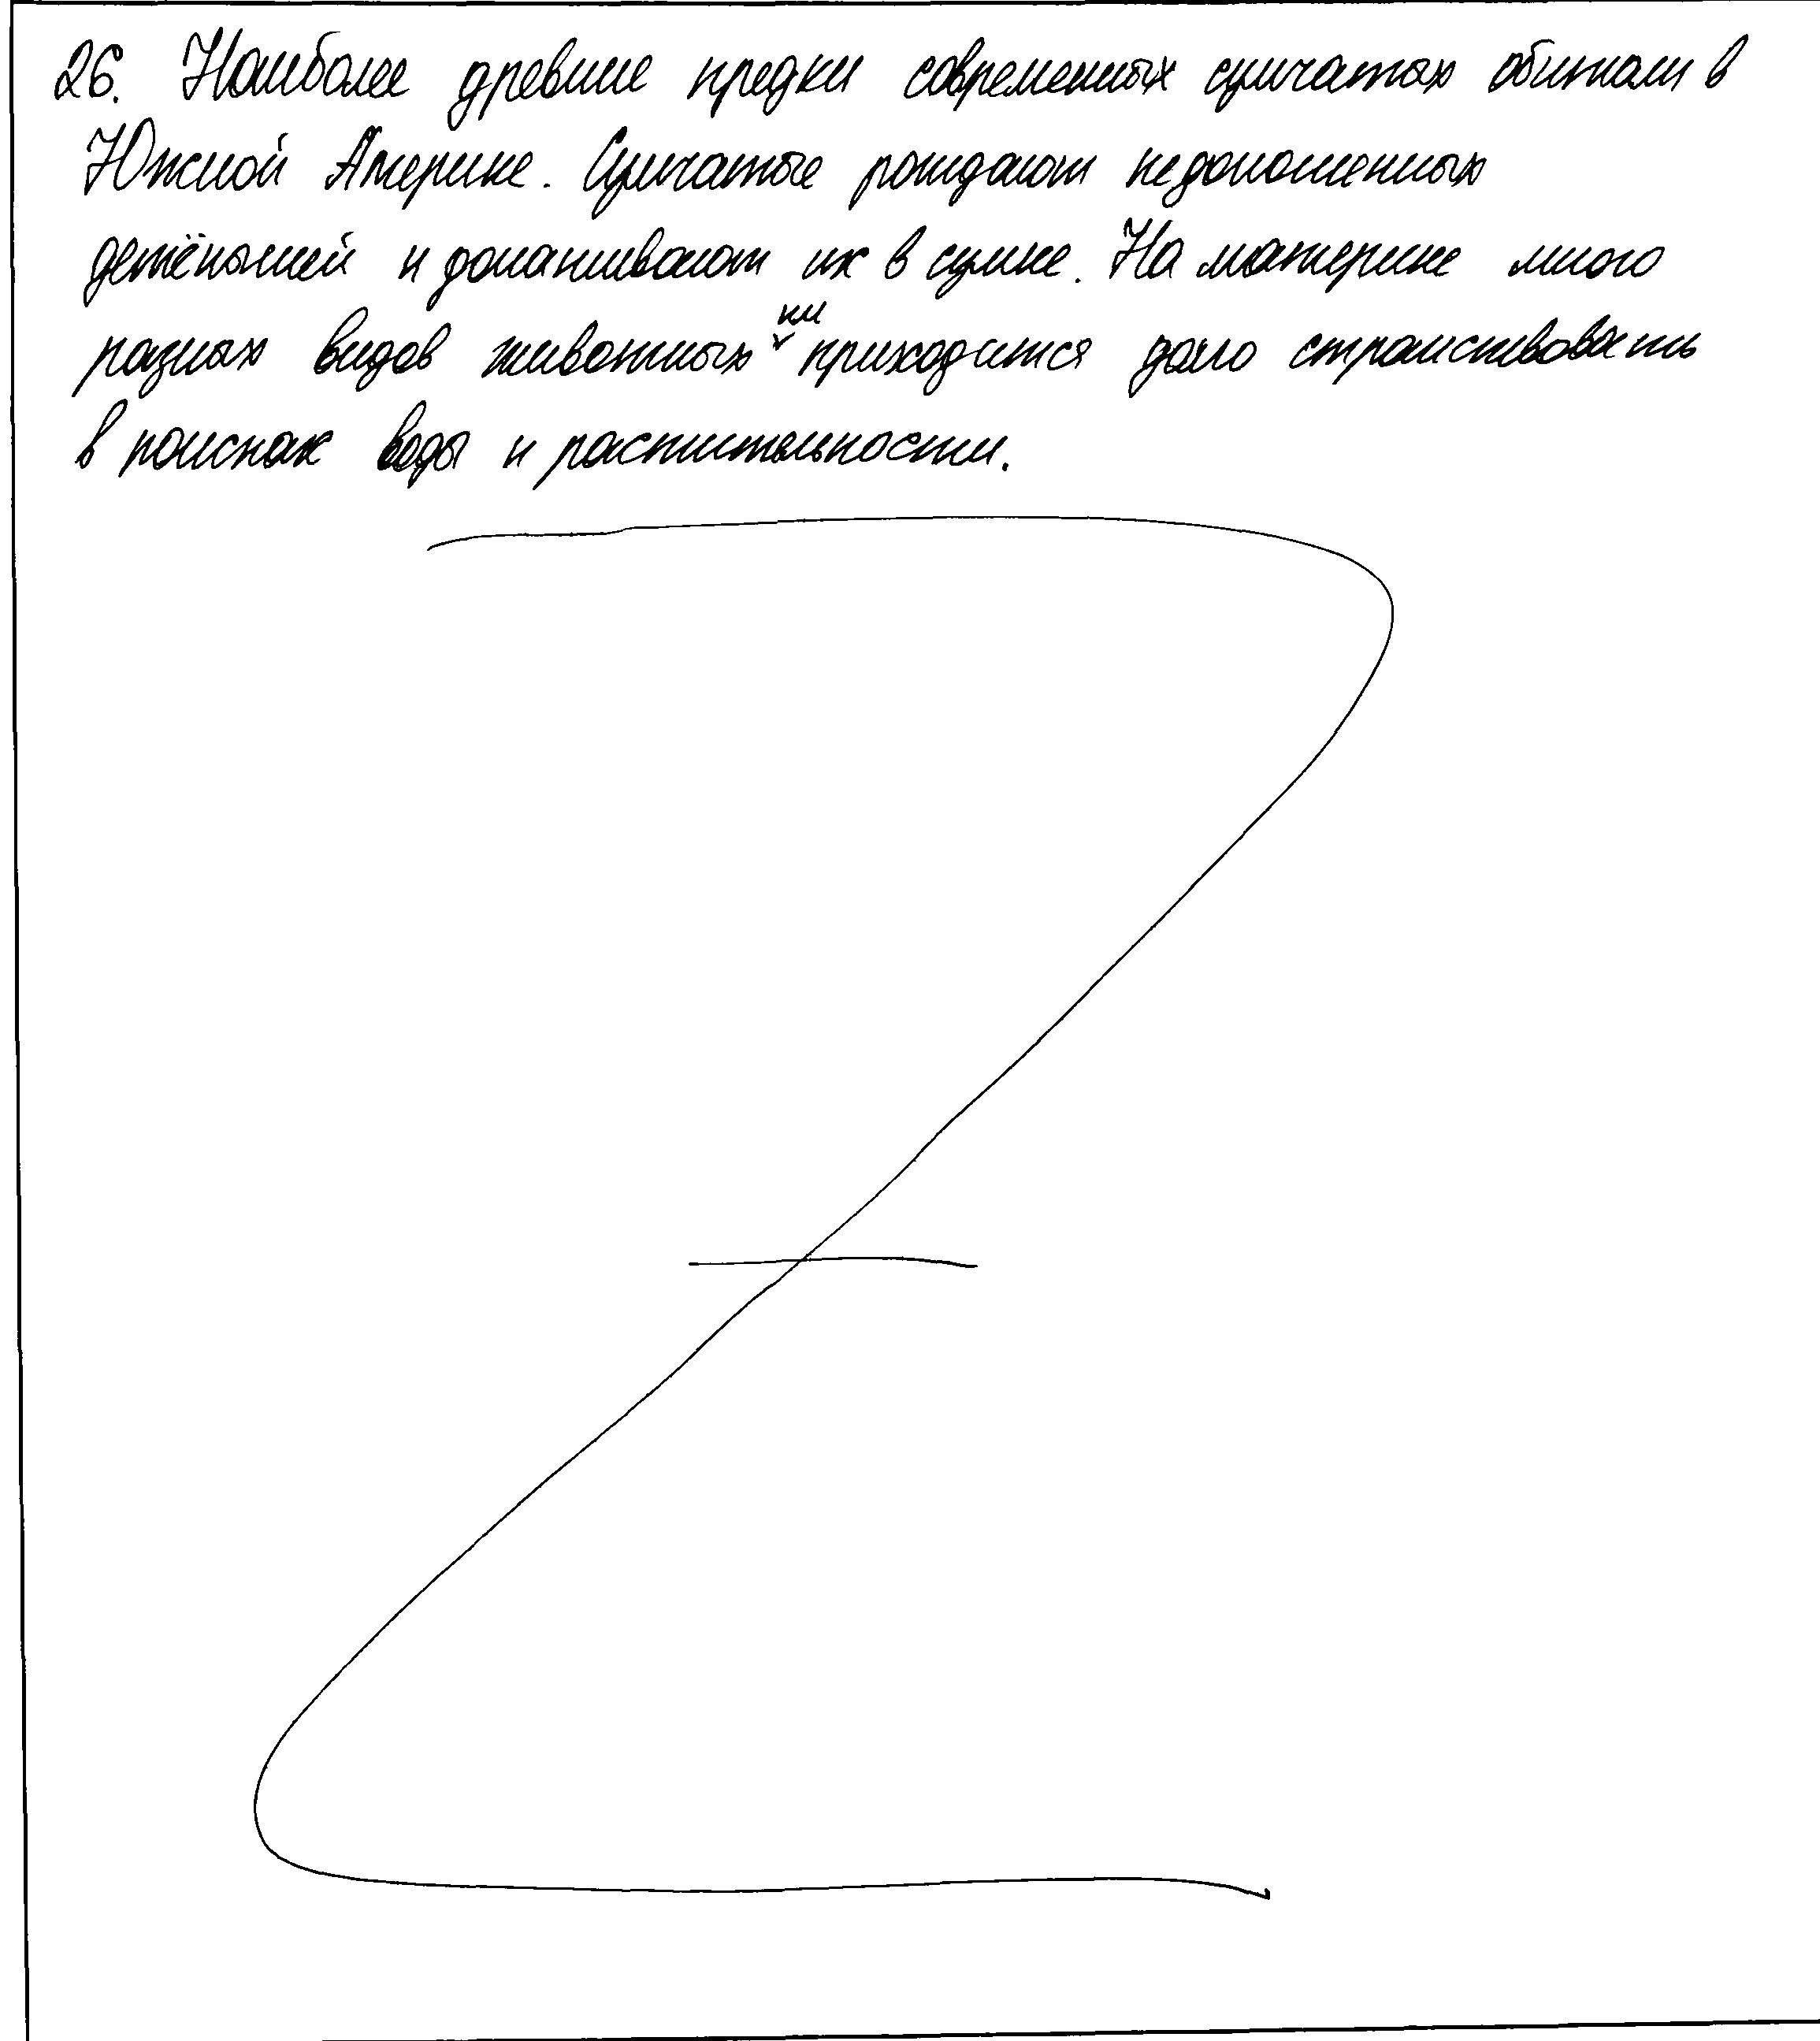 26. Наиболее древние предки современных сумчатых обитали в
Южной Америке. Сумчатые рождают недоношенных
детёнышей и донашивают их в сумке. На материке много
разных видов животных им приходится долго странствовать
в поисках воды и растительности.